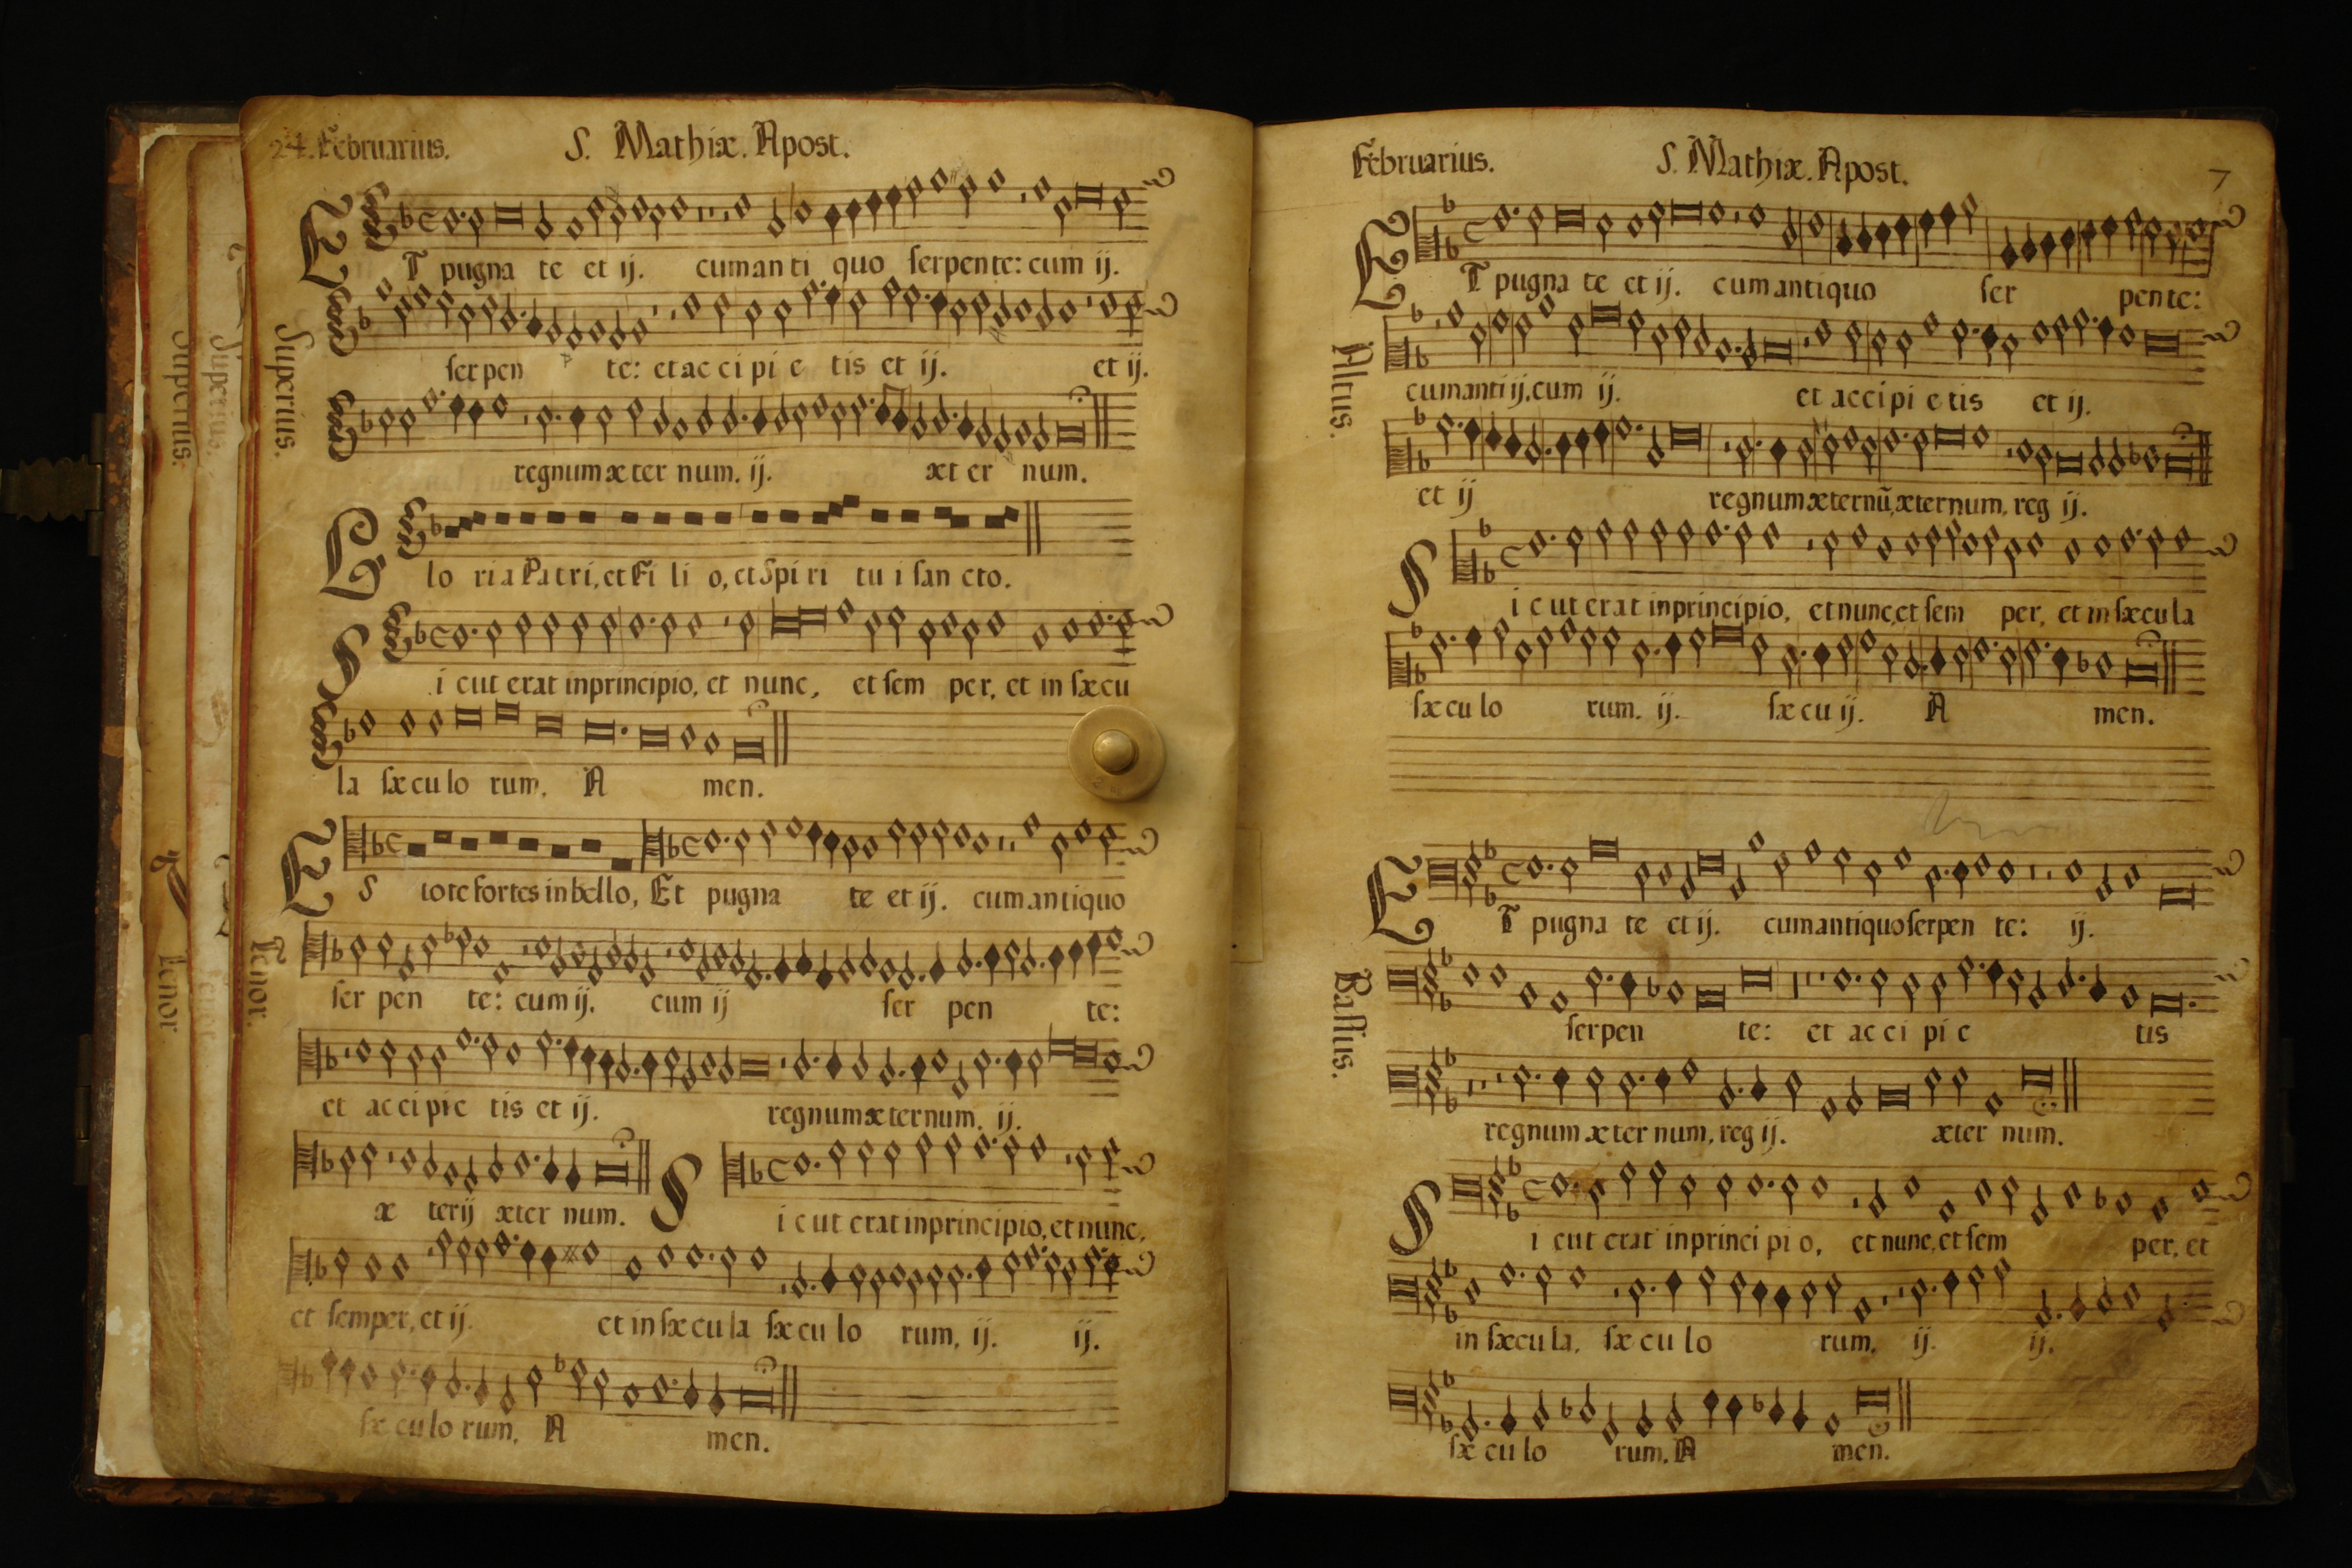 24. Februarius. S. Mathiæ. Apost.
Superius.
ET pugna te et ij. cum an ti quo ſerpente: cum ij.
ſer pen te: et ac ci pi e tis et ij. et ij.
regnum æ ter num. ij. æt er num.
Glo ria Patri, et Fi li o, et Spi ri tu i ſan cto.
Si cut erat in principio, et nunc, et ſem per, et in ſæ cu
la ſæ cu lo rum. A men.
Tenor.
ES tote fortes in bello, Et pugna te et ij. cum antiquo
ſer pen te: cum ij. cum ij ſer pen te:
et ac ci pi e tis et ij. regnum æ ternum. ij.
æ ter ij æter num. Si cut erat in principio, et nunc,
et ſemper, et ij. et in ſæ cu la ſæ cu lo rum, ij. ij.
ſæ cu lo rum. A men.
Superius.
Tenor
Superius.
Februarius. S. Mathiæ. Apost. 7
Altus.
ET pugna te et ij. cum antiquo ſer pen te:
cum anti ij. cum ij. et accipi e tis et ij.
et ij regnum æternũ, æternum, reg ij.
Si c ut erat in principio, et nunc, et ſem per, et in ſæcu la
ſæ cu lo rum. ij. ſæ cu ij. A men.
Baſſus.
ET pugna te et ij. cum antiquo ſerpen te: ij.
ſerpen te: et ac ci pi e tis
regnum æ ter num, reg ij. æter num.
Si cut erat in princi pi o, et nunc, et ſem per, et
in ſæcu la, ſæ cu lo rum, ij. ij.
ſæ cu lo rum. A men.